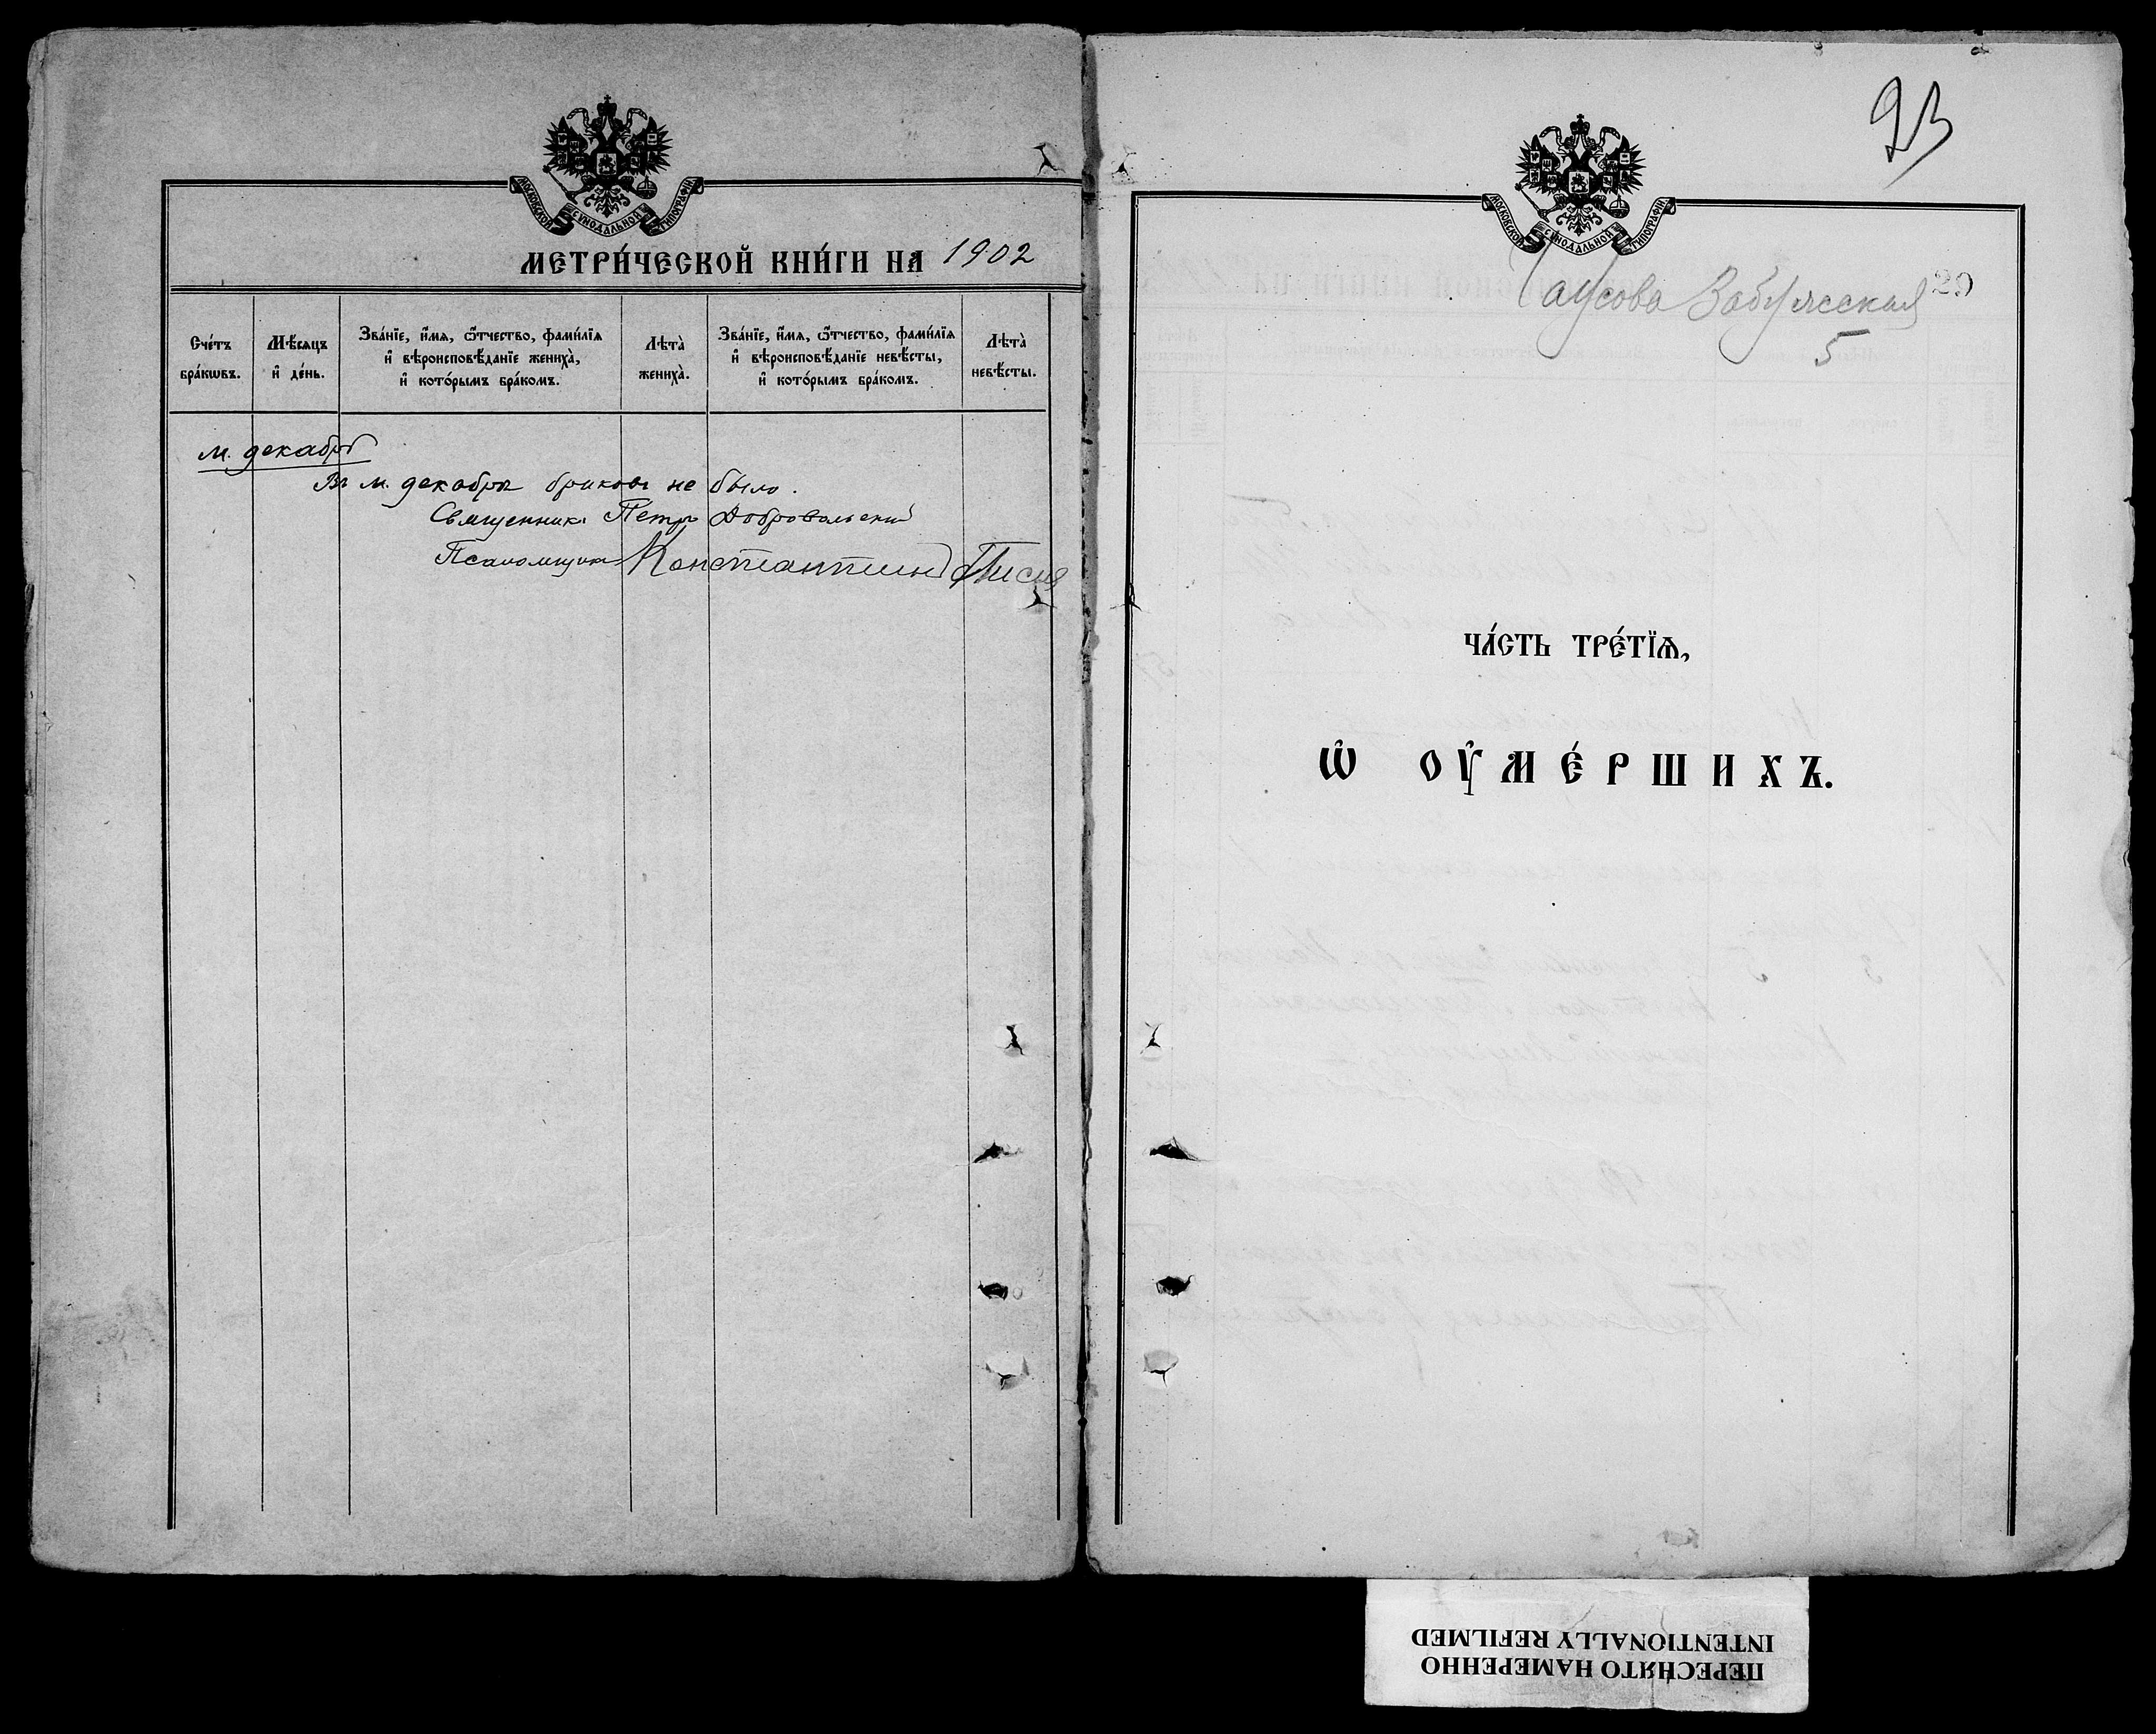 МОСКОВСКОЙ СѴНОДАЛЬНОЙ ТИПОГРАФІИ
МЕТРИ́ЧЕСКОЙ КНИ́ГИ НА 1902
Сче́тъ бра́кѡвъ.
Мѣ́сяцъ и҆ де́нь.
Зва́нїе, и҆́мѧ, ѻ҆́тчество, фами́лїѧ
и҆ вѣроисповѣ́данїе жениха̀,
и҆ кото́рымъ бра́комъ.
Лѣта̀ жениха̀.
Зва́нїе, и҆́мѧ, ѻ҆́тчество, фами́лїѧ
и҆ вѣроисповѣ́данїе невѣ́сты,
и҆ кото́рымъ бра́комъ.
Лѣта̀ невѣ́сты.
м. декабрь
Въ м. декабрѣ браковъ не было.
Священникъ Петръ Добровольскій
Псаломщикъ Константинъ
23
МОСКОВСКОЙ СѴНОДАЛЬНОЙ ТИПОГРАФІИ
29
5
ЧА́СТЬ ТРЕ́ТЇѦ,
Ѡ҆ ОУ҆МЕ́РШИХЪ.
ПЕРЕСНЯТО НАМЕРЕННО
INTENTIONALLY REFILMED